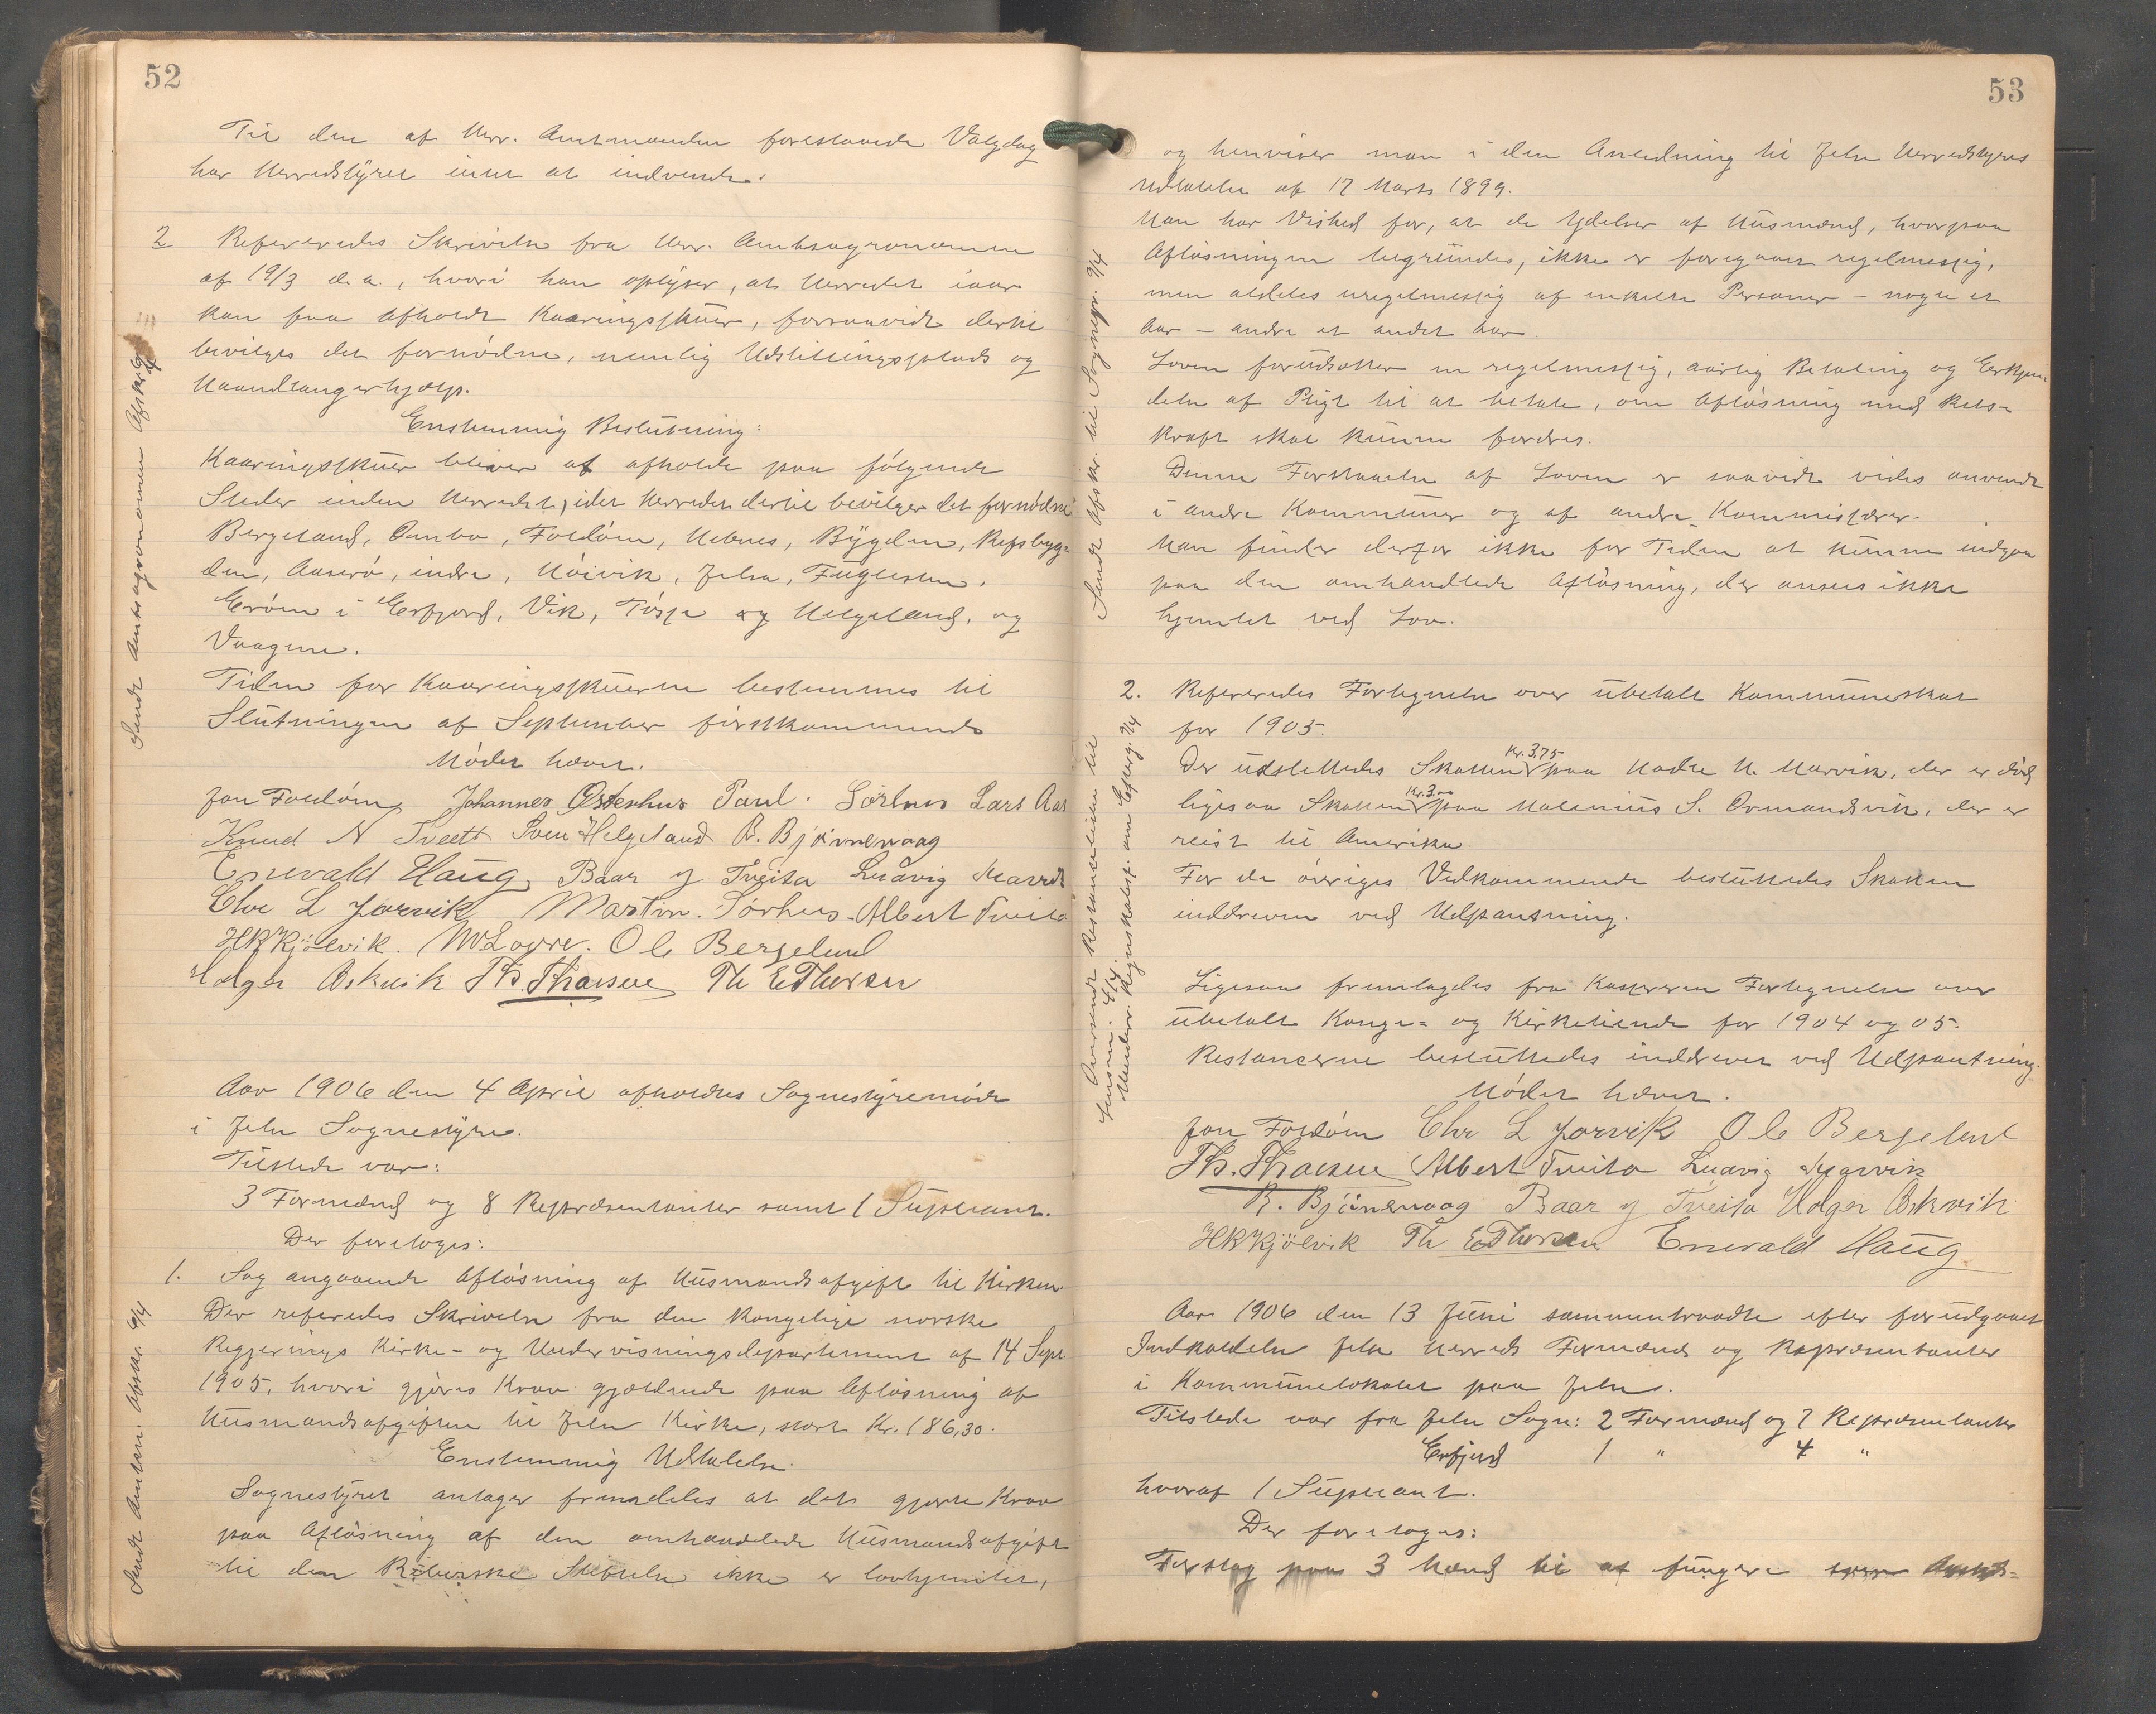 52
Til den af Herr. Amtmanden foreslaaede Valgdag
har Herredstyret intet at indvende.
2 Refereredes Skrivelse fra Herr. Amtsagronomen
af 19/3 d.a., hvori han oplyser, at Herredet iaar
kan faa afholdt Kaaringsskuer, forsaavidt dertil
bevilges det fornødne, nemlig Udstillingsplads og
Haandlangerhjælp.
Enstemmig Beslutning:
Kaaringsskuer bliver at afholde paa følgende
Steder inden Herredet, idet Herredet dertil bevilger det fornødne
Bergeland, Ombo, Foldøen, Hebnes, Bygden, Refsbyg=
den, Aaserø, indre, Høivik, Jelse, Fuglesten.
Erøen i Erfjord, Vik, Tøsse og Helgeland, og
Vaagene.
Tiden for Kaaringsskuerne bestemmes til
Slutningen af September førstkommende
Mødet hævet.
Jon Foldøen Johannes Østerhus Paul. Sørhus Lars Aas
Knud N Tveit Sven Helgeland R. Bjørnevaag
Enevald Haug Baar J Tveita Ludvig Marvik
Chr L Jørvik Martin. Sørhus. Albert Tveita
HKKjölvik. Ole Bergeland
Holger Askvik Th. Thorsen Th E Thorsen
Aar 1906 den 4 April afholdtes Sognestyremøde
i Jelse Sognestyre.
Tilstede var:
3 Formænd og 8 Repræsentanter samt 1 Supleant.
Der foretoges:
1. Sag angaaende Afløsning af Husmandsafgift til Kirken
Der referedes Skrivelse fra den Kongelige norske
Regjerings Kirke- og Undervisningsdepartement af 14 Sept
1905, hvori gjøres Krav gjældende paa Afløsning af
Husmandsafgiften til Jelse Kirke, stort Kr. 186,30.
Enstemmig Udtalelse.
Sognestyret antager fremdeles at det gjorte Krav
paa Afløsning af den omhandlede Husmandsafgift
til den Ribeske Stiftelse ikke er lovhjemlet,
Sendt Amtsagronomen Afskr. 9/4
Sendt Amtm. Afskr. 9/4
53
og henviser man i den Anledning til Jelse Herredstyres
Udtalelse af 17 Marts 1899.
Man har Vished for, at de Ydelser af Husmænd, hvorpaa
Afløsningen begrundes, ikke er foregaaet regelmessig,
men aldeles uregelmessig af enkelte Personer – nogle et
Aar – andre et andet Aar.
Loven forudsætter en regelmessig, aarlig Betaling og Erkjen
delse af Pligt til at betale, om Afløsning med Rets-
kraft skal kunne fordres.
Denne Forstaaelse af Loven er saavidt vides anvendt
i andre Kommuner og af andre Kommissærer.
Man finder derfor ikke for Tiden at kunne indgaa
paa den omhandlede Afløsning, der ansees ikke
hjemlet ved Lov.
2. Refereredes Fortegnelse over ubetalt Kommuneskat
for 1905.
Der udslettedes Skatten Kr. 3,75 paa Malde H. Marvik, der er død
ligesaa Skatten Kr. 3,00 paa Malenius S. Ormandsvik, der er
reist til Amerika.
For de øvriges Vedkommende besluttedes Skatten
inddreven ved Udpantning.
Ligesaa fremlagdes fra Kassereren Fortegnelse over
ubetalt Konge= og Kirketiende for 1904 og 05.
Restancerne besluttedes inddrevet ved Udpantning.
Mødet hævet.
Jon Foldøen Chr L Jørvik Ole Bergeland
Th. Thorsen Albert Tveita Ludvig Marvik
R. Bjørnevaag Baar J Tveita Holger Askvik
HKKjölvik Th E Thorsen Enevald Haug
Aar 1906 den 13 Juni sammentraadte efter forudgaaet
Indkaldelse Jelse Herreds Formænd og Repræsentanter
i Kommunelokalet paa Jelse.
Tilstede var fra Jelse Sogn: 2 Formænd og 7 Repræsentanter
Erfjord 1 " 4 "
hvoraf 1 Supleant.
Der foretoges:
Forslag paa 3 Mænd til at fungere som Amts=
Sendt Afskr. til Sognepr. 9/4
Oversendt Restancelisten til
Lensm. 9/4.
Underr. Regnskabsf. om Efterg. 9/4